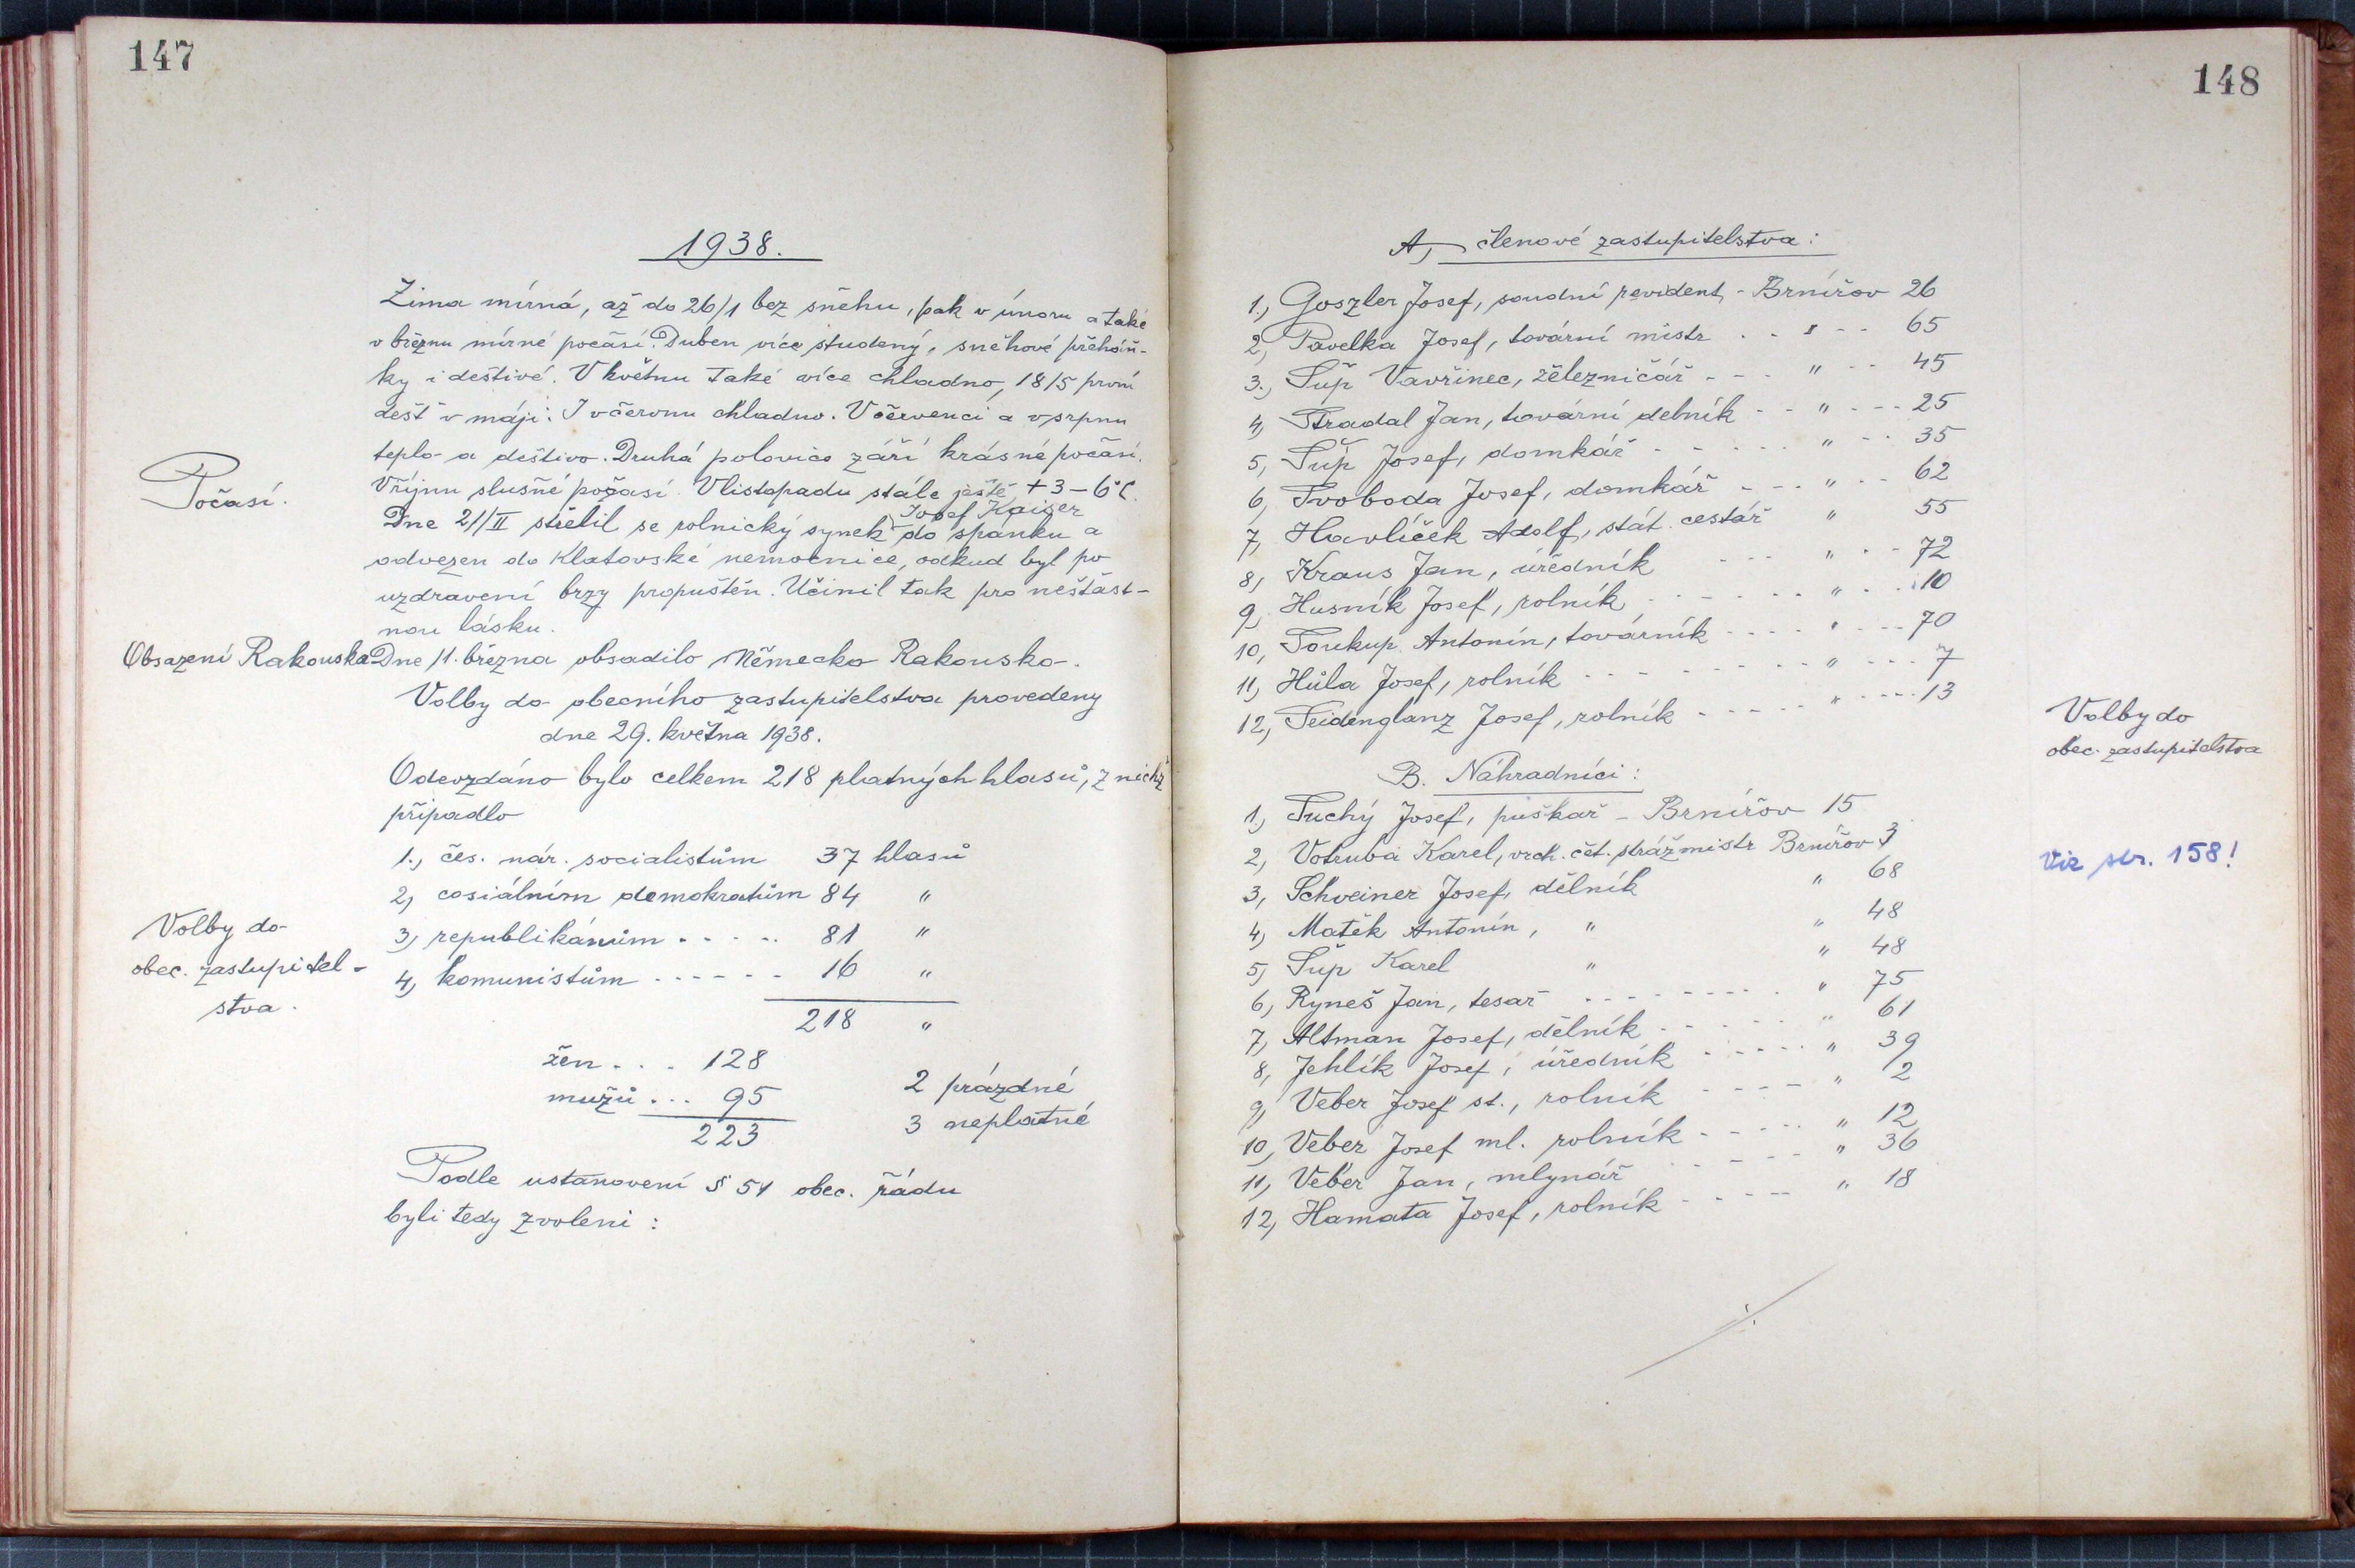 147
1938.
Zima mírná, až do 26/1 bez sněhu, pak v únoru a také
v březnu mírné počasí. Duben více studený, sněhové přeháň-
ky i deštivé. V květnu také více chladno, 18/5 první
dešť v máji. I v červnu chladno. V červenci a v srpnu
teplo a deštivo. Druhá polovice září krásné počasí.
Počasí.
V říjnu slušné počasí. V listopadu stále ještě + 3 – 6°C.
Josef Kaiser
Dne 21/II střelil se rolnický synek do spánku a
odvezen do Klatovské nemocnice, odkud byl po
uzdravení brzy propuštěn. Učinil tak pro nešťast-
nou lásku.
Obsazení Rakouska
Dne 11. března obsadilo Německo Rakousko.
Volby do obecního zastupitelstva provedeny
dne 29. května 1938.
Odevzdáno bylo celkem 218 platných hlasů, z nichž
připadlo
1., čes. nár. socialistům 37 hlasů
2, cosiálním demokratům 84 "
Volby do
obec. zastupitel-
stva.
3, republikánům - - - - - 81 "
4, komunistům - - - - - - 16 "
218 "
žen . . . 128
mužů . . . 95
223
2 prázdné
3 neplatné
Podle ustanovení § 51 obec. řádu
byli tedy zvoleni :
148
A, členové zastupitelstva :
1., Goszler Josef, soudní revident, - Brnířov 26
2, Pavelka Josef, tovární mistr . - " - - 65
3., Šůp Vavřinec, železničář - - - " - - 45
4, Stradal Jan, tovární dělník - - " - - - 25
5, Šůp Josef, domkář - - - - - " - - 35
6, Svoboda Josef, domkář - - - " - - 62
7, Havlíček Adolf, stát. cestář " 55
8, Kraus Jan, úředník - - - " - - 72
9, Husník Josef, rolník - - - - - - " - - 10
10, Soukup Antonín, továrník - - - - " - - - 70
11, Hůla Josef, rolník - - - - - - - - " - - - 7
12, Seidenglanz Josef, rolník - - - - - " - - - - 13
Volby do
obec. zastupitelstva
B. Náhradníci :
1., Suchý Josef, puškař - Brnířov 15
2, Votruba Karel, vrch. čet. strážmistr Brnířov 3
Viz str. 158!
3, Schveiner Josef, dělník " 68
4, Matěk Antonín, " " 48
5, Šůp Karel " " 48
6, Ryneš Jan, tesař - - - - - - - - " 75
7, Altman Josef, dělník - - - - - " 61
8, Jehlík Josef, úředník - - - - - " 39
9, Veber Josef st., rolník - - - - - " 2
10, Veber Josef ml. rolník - - - - - " 12
11, Veber Jan, mlynář - - - - - " 36
12, Hamata Josef, rolník - - - - - " 18